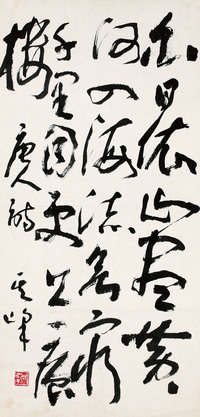 白日依山尽黄
河入海流欲穷
千里目更上一层
楼唐人诗
其峰